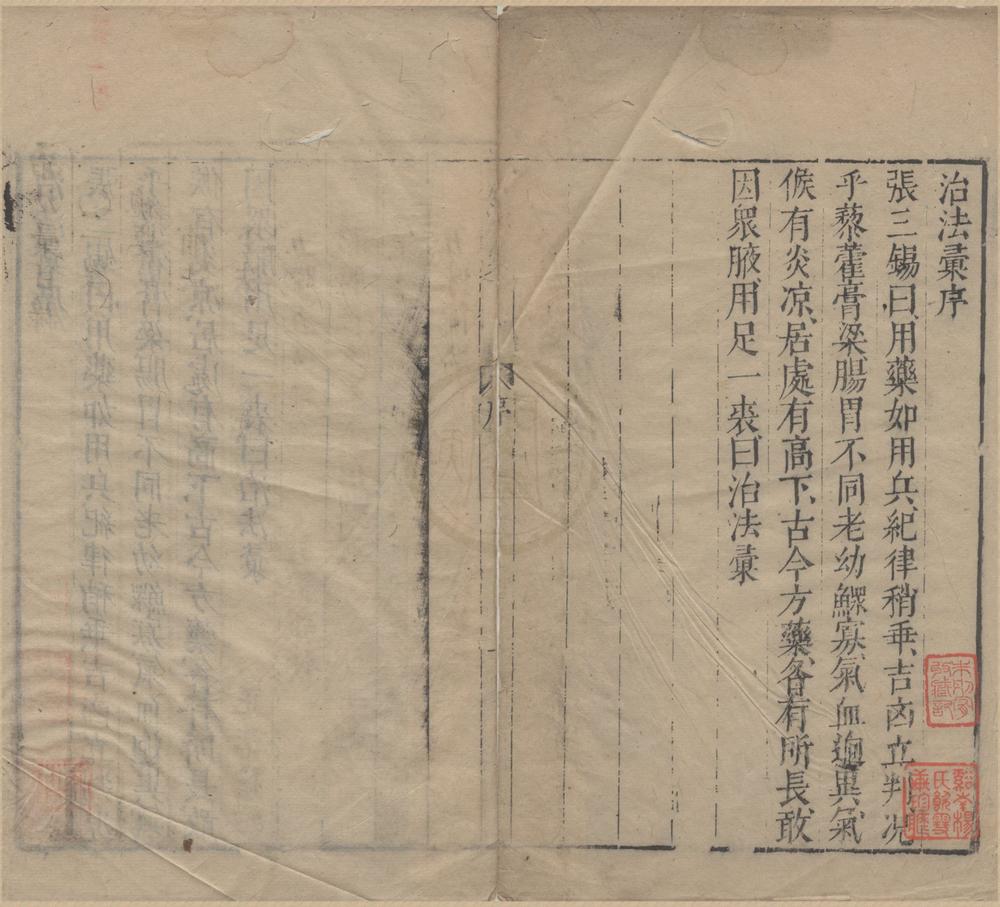 治法彚序
張三錫曰、用藥如用兵、紀律稍乖、吉凶立判、况
乎藜藿膏粱腸胃不同老幼鰥寡、氣血逈異氣
候有炎凉、居處有高下、古今方藥、各有所長、敢
因衆腋、用足一裘、曰治法彚
序